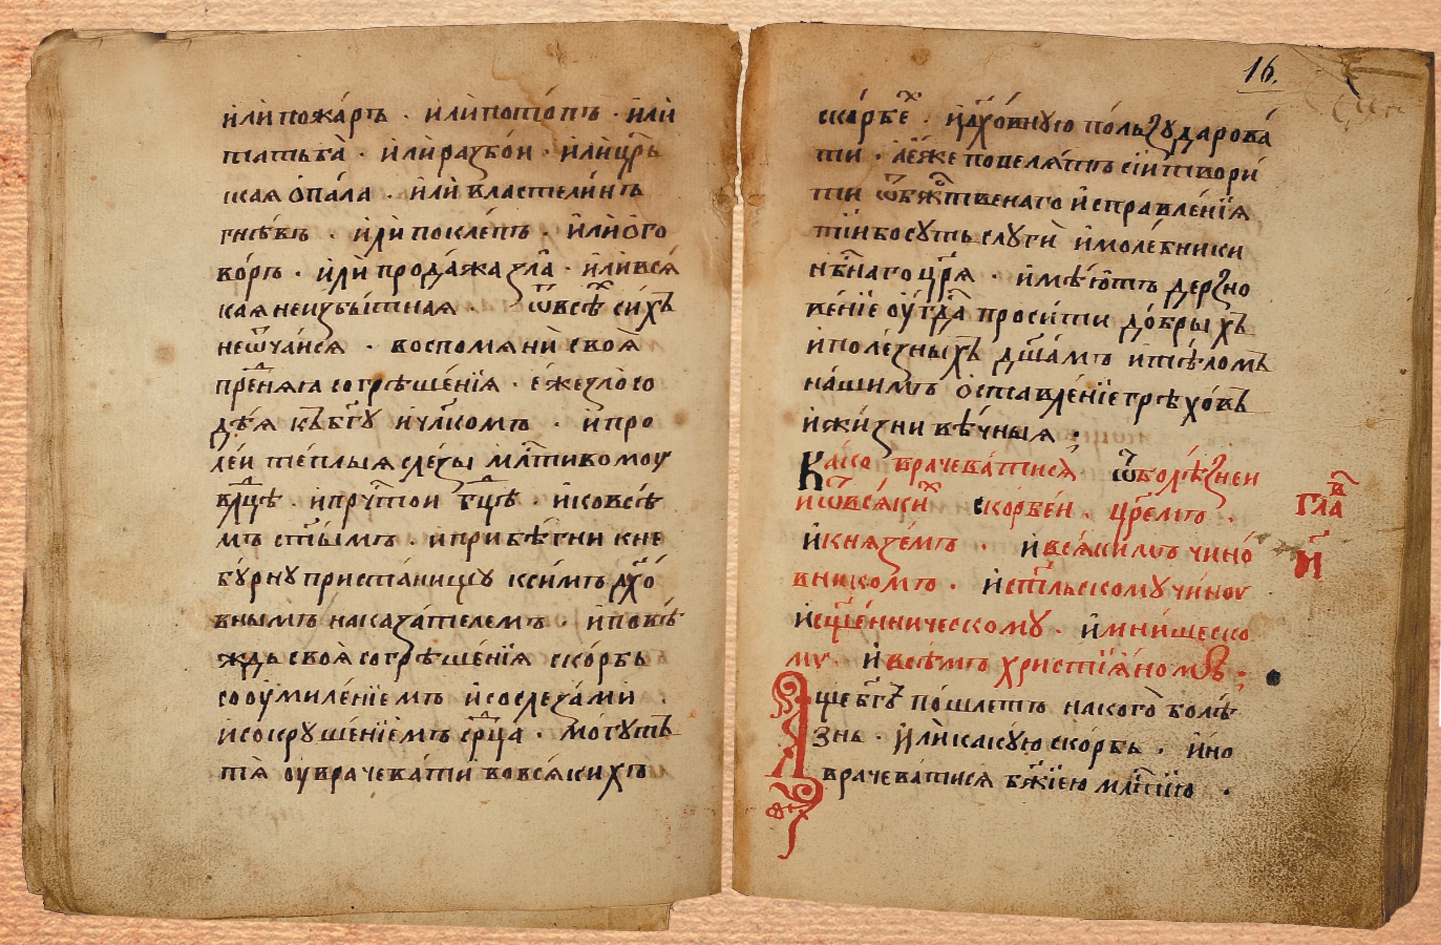 и҆лѝ пожа́ръ · и҆лѝ пото́пъ · и҆лѝ
татьба̀ · и҆лѝ разбо́и · и҆лѝ цр҃ь
ская ѻ҆па́ла · и҆лѝ властели́нъ
гнѣ́въ · и҆лѝ покле́пъ · и҆лѝ ѻ҆го
во́ръ · и҆лѝ прода́жа зла̀ · и҆лѝ вся́
кая неизбы́тная · ѿ всѣⷯ си́хъ
неѿча́исѧ · воспомѧнѝ своѧ̀
пре́ⷤнѧѧ согрѣше́нїѧ · е҆́же зло̀ со
дѣ́ѧ къ бг҃у и҆ чл҃комъ · и҆ про
ле́и те́плыѧ сле́зы млⷭ҇тивомоу
влⷣцѣ · и҆ прчⷭ҇тои бцⷣѣ · и҆ ко всѣ́
мъ ст҃ы́мъ · и҆ прибѣ́гни к не
бу́рну приста́нищу к си́мъ дх҃о́
внымъ наказа́телемъ · и҆ повѣ́
ждь своѧ̀ согрѣше́нїѧ ско́рбь
со оу҆миле́нїемъ и҆ со слеза́ми ·
и҆ сокруше́нїемъ срⷣца · мо́гутъ
тѧ̀ оу҆врачева́ти во всѧ́кихъ
16.
ско́рбеⷯ · и҆ дх҃о́вную по́льзу дарова́
ти · а҆ е҆́же повелѧ́тъ сїѝ твори́
ти ѿ бж҃е́твенаго и҆справле́нїѧ
тїи́ бо су́ть слугѝ и҆ моле́бники
нбⷭ҇наго цр҃ѧ̀ · и҆мѣ́ютъ дерзно
ве́нїе оу҆ гдⷭ҇а проси́ти до́брыхъ
и҆ поле́зныхъ дш҃а́мъ и҆ тѣло́мъ
на́шимъ ѻ҆ставле́нїе грѣхо́въ
и҆ жи́зни вѣ́чныѧ :
Ка́ко врачева́тисѧ ѿ болѣ́знеи
и҆ ѿ всѧ́киⷯ ско́рбеи · цр҃е́мъ ·
и҆ кнѧзе́мъ · и҆ всѧ́кимъ чино́
вникомъ · и҆ ст҃льскому чи́ноу
и҆ сщ҃е́нническому · и҆ мни́шеско
му · и҆ всѣ́мъ христїѧ́номъ :
глаⷡ
и҃
Аще бг҃ъ по́шлетъ на кого̀ болѣ́
знь · и҆лѝ какую ско́рбь · и҆но
врачева́тисѧ бж҃їею млⷭ҇тїю ·